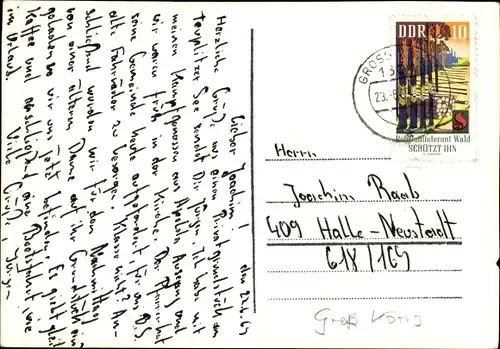 den 22.6.69
Lieber Joachim!
Herzliche Grüße aus einem Privatgrundstück am
Teupitzer See sendet Dir Jürgen. Ich habe mit
meinen Kampfgenossen aus Apolda Ausgang und
wir waren früh in der Kirche. Der Pfarrer hat
seine Gemeinde heute aufgefordert, für uns
alte Fahrräder zu besorgen. Klasse, nicht? An-
schließend wurden wir für den Nachmittag
von einer älteren Dame auf ihr Grundstück ein-
geladen, wo wir uns jetzt befinden. Es gibt gleich
Kaffee und abschließend eine Bootsfahrt wie
im Urlaub. Viele Grüße, Jürgen
DDR 10
GROSS
23.6
Rohstofflieferant Wald
SCHÜTZT IHN
Herrn
Joachim Raab
409 Halle-Neustadt
618/169
Groß Köris